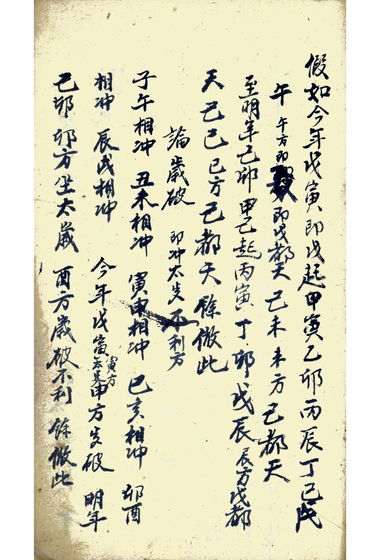 假如今年戊寅即戊起甲寅乙卯丙辰丁巳戊
午午方即即戊都天己未未方己都天
至明年己卯甲己起丙寅丁卯戊辰辰方戊都
天己巳巳方己都天餘倣此
論歲破即冲太歲不利方
子午相冲丑未相冲寅申相冲巳亥相冲卯酉
相冲辰戌相冲今年戊寅寅方太歲申方歲破明年
己卯卯方坐太歲酉方歲破不利餘倣此